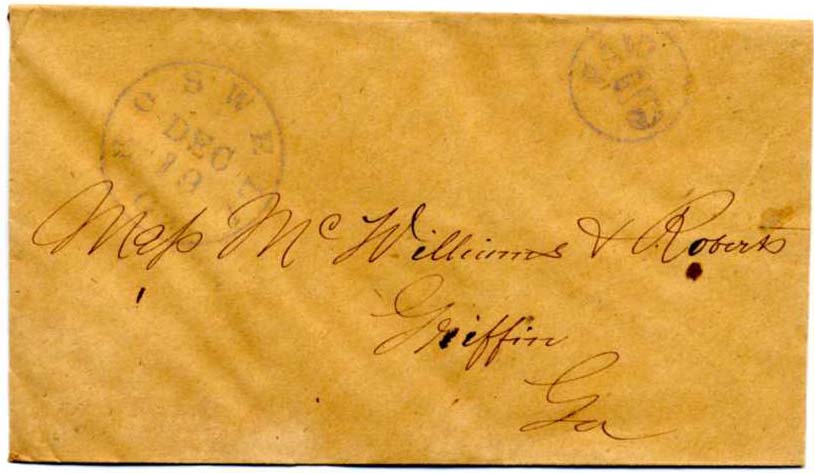 DEC
19
Mess Mc Williams & Roberts
Griffin
Ga